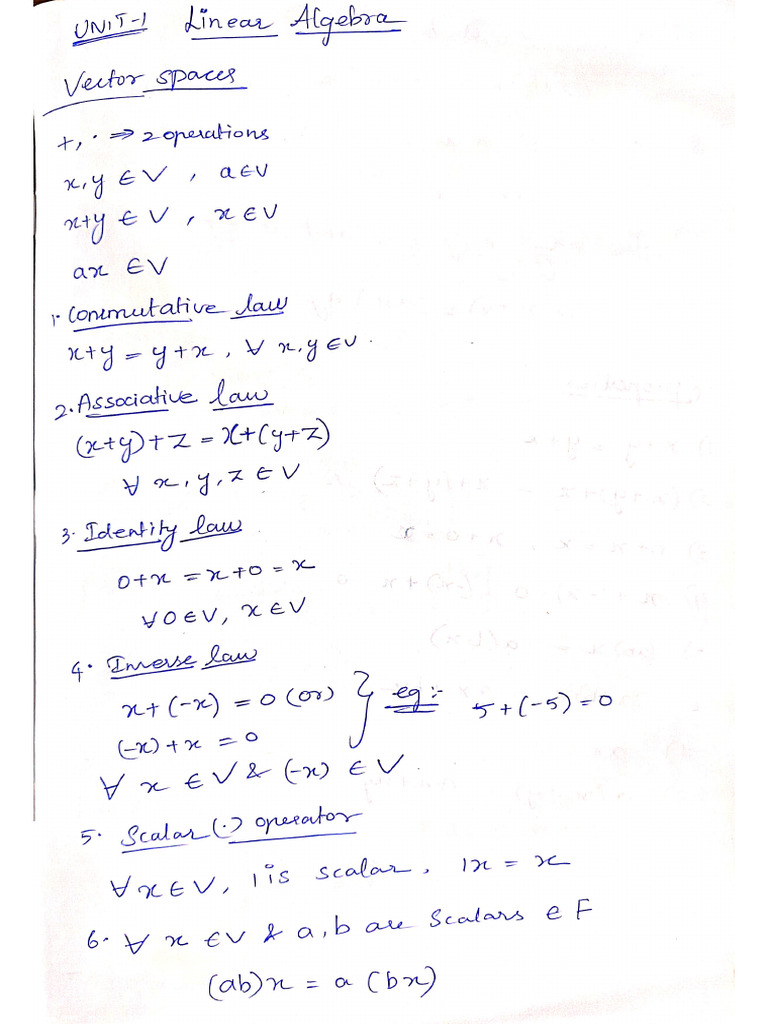 UNIT-1 Linear Algebra
Vector spaces
+, · ⇒ 2 operations
x, y ∈ V , a ∈ V
x+y ∈ V , x ∈ V
ax ∈ V
1. Commutative law
x+y = y+x , ∀ x, y ∈ V .
2. Associative law
(x+y)+z = x+(y+z)
∀ x, y, z ∈ V
3. Identity law
0+x = x+0 = x
∀ 0 ∈ V, x ∈ V
4. Inverse law
x+(-x) = 0 (or) } eg:- 5+(-5) = 0
(-x)+x = 0
∀ x ∈ V & (-x) ∈ V.
5. Scalar (·) operator
∀ x ∈ V, 1 is scalar, 1x = x
6. ∀ x ∈ V & a, b are scalars ∈ F
(ab)x = a (bx)